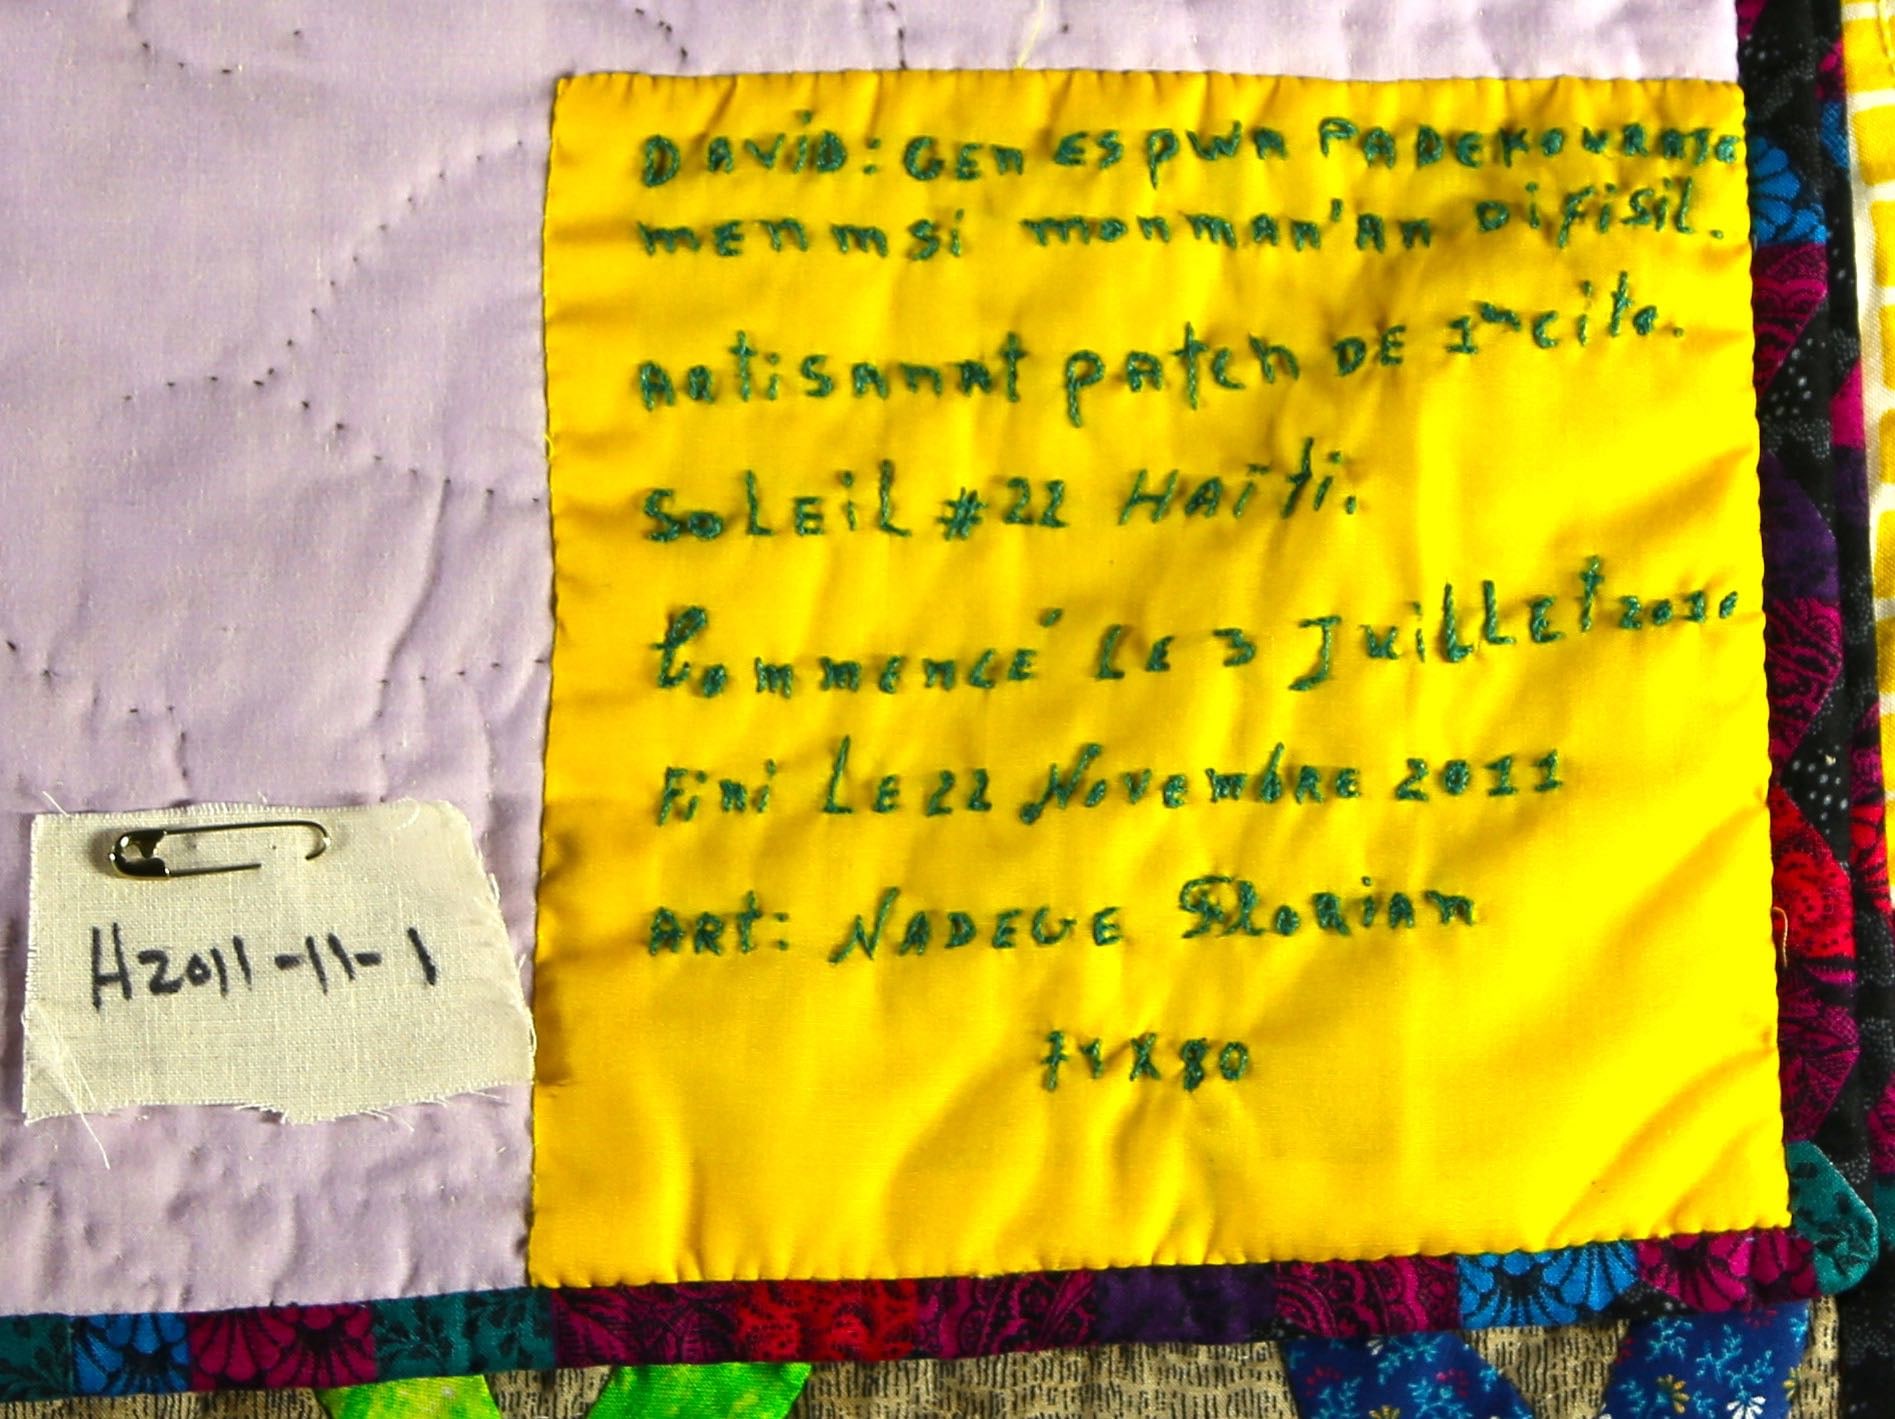 DAVID: GEN ESPWA PA DEKOURAJE
MENM SI MONMAN'AN DIFISIL.
ARTISANAT PATCH DE 1re Cite.
SOLEIL #22 HAÏTI.
Commencé LE 3 JUILLET 2010
Fini LE 22 Novembre 2011
ART: NADEGE Florian
71 X 80
H2011-11-1